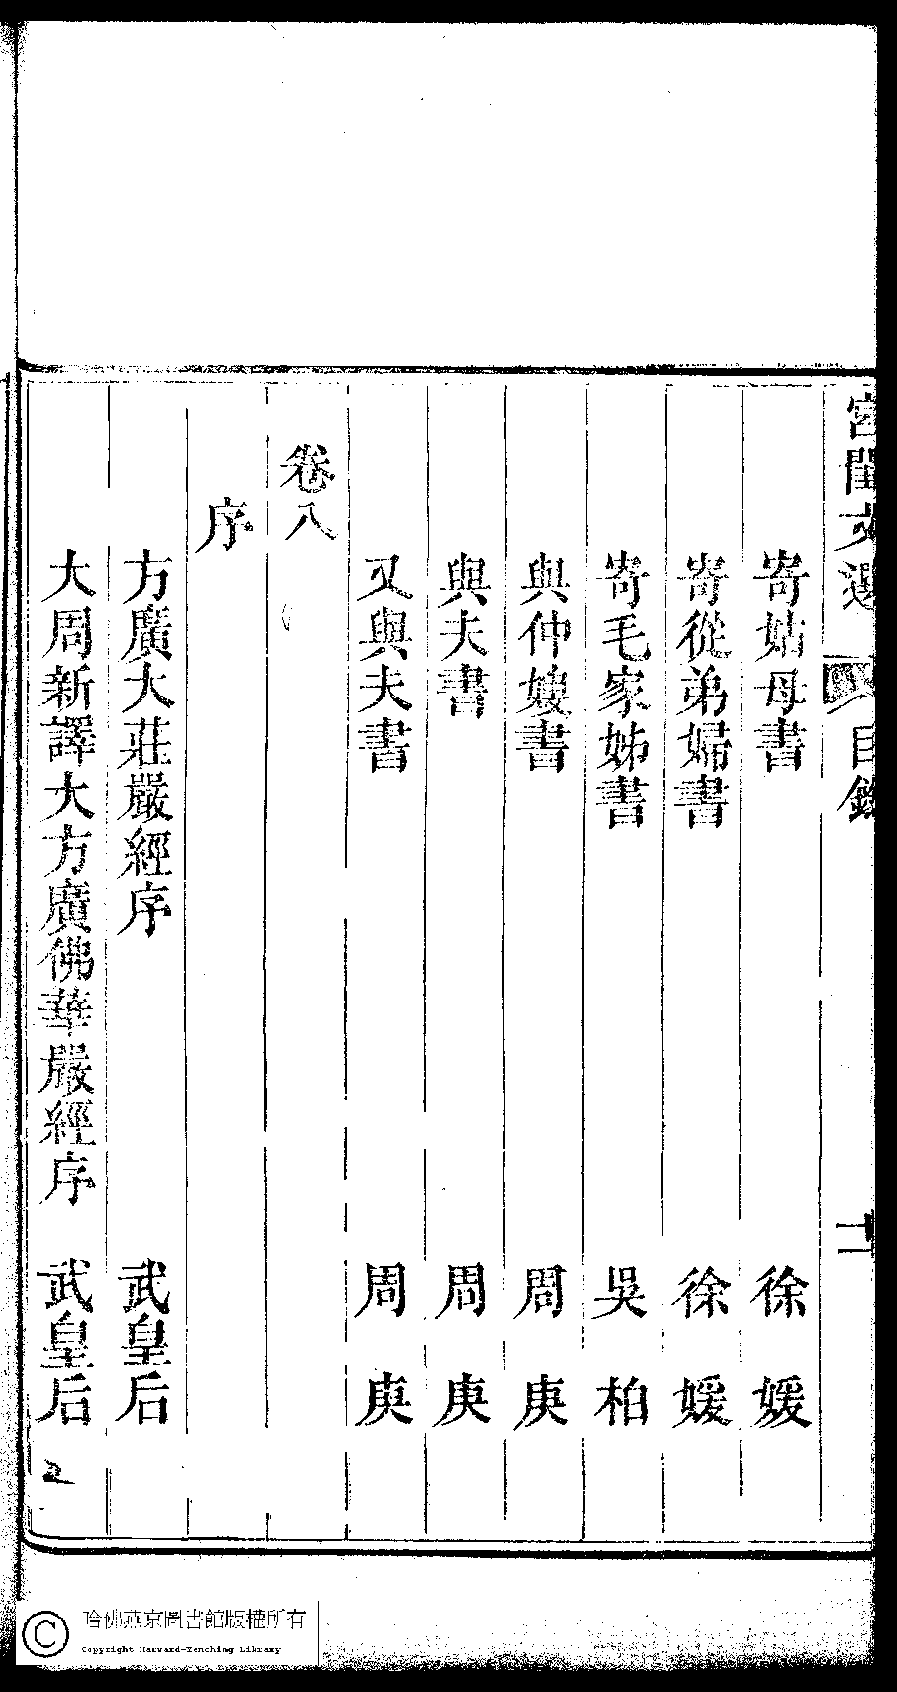 宮閨文選 目錄 十一
寄姑母書 徐媛
寄從弟婦書 徐媛
寄毛家姊書 吳柏
與仲嫂書 周庚
與夫書 周庚
又與夫書 周庚
卷八
序
方廣大莊嚴經序 武皇后
大周新譯大方廣佛華嚴經序 武皇后
哈佛燕京圖書館版權所有
Copyright Harvard-Yenching Library